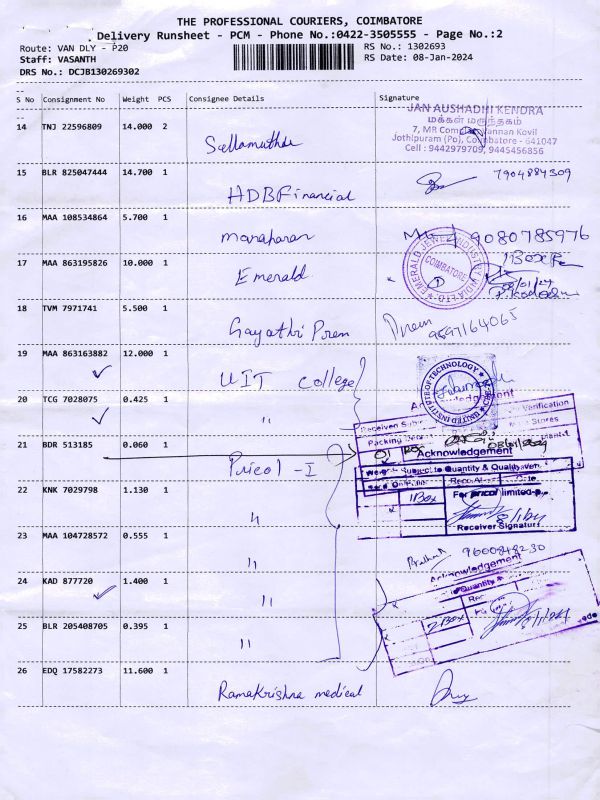 THE PROFESSIONAL COURIERS, COIMBATORE
Delivery Runsheet - PCM - Phone No.:0422-3505555 - Page No.:2
Route: VAN DLY - P20
RS No.: 1302693
Staff: VASANTH
RS Date: 08-Jan-2024
DRS No.: DCJB130269302
S No Consignment No Weight PCS Consignee Details Signature
JAN AUSHADHI KENDRA
மக்கள் மருந்தகம்
Jothipuram (Po), Coimbatore - 641047
Cell : 9442979709, 9445456856
14 TNJ 22596809 14.000 2
15 BLR 825047444 14.700 1 HDBFinancial 7904884309
16 MAA 108534864 5.700 1 manoharan 9080785976
17 MAA 863195826 10.000 1 Emerald
EMERALD JEWEL INDUSTRY INDIA LTD.
COIMBATORE
18 TVM 7971741 5.500 1 Gayathri Prem Prem
9597164065
19 MAA 863163882 12.000 1 UIT College
UNITED INSTITUTE OF TECHNOLOGY
20 TCG 7028075 0.425 1 "
Acknowledgement
Verification
21 BDR 513185 0.060 1 Pricol - I
Acknowledgement
Subject to Quantity & Quality
22 KNK 7029798 1.130 1 "
1Box
For pricol limited
Receiver Signature
23 MAA 104728572 0.555 1 "
9600848230
Acknowledgement
24 KAD 877720 1.400 1 "
Quantity
2 Box
25 BLR 205408705 0.395 1 "
26 EDQ 17582273 11.600 1 Ramakrishna medical